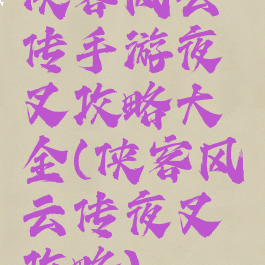 侠客风云
传手游夜
叉攻略大
全(侠客风
云传夜叉
攻略)